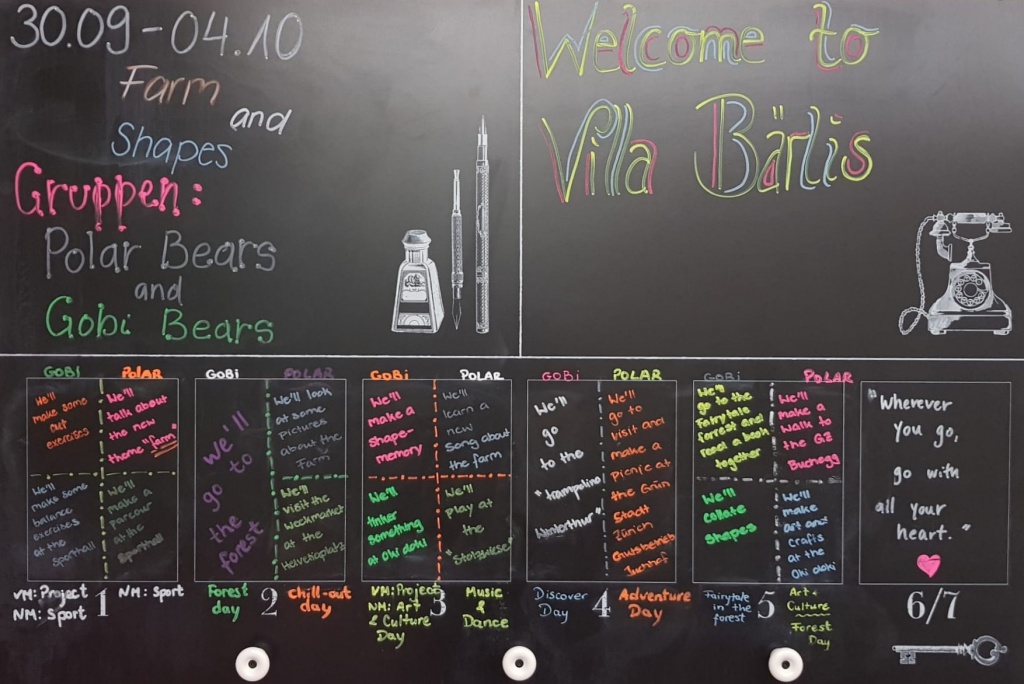 30.09-04.10
Farm
and
Shapes
Gruppen:
Polar Bears
and
Gobi Bears
Welcome to
Villa Bärlis
GOBI
POLAR
We'll
make some
out
exercises
We'll
talk about
the new
theme "farm"
We'll
make some
balance
exercises
at the
Sporthall
We'll
make a
parcour
at the
Sporthall
VM: Project
NM: Sport
1
NM: Sport
GOBI
POLAR
we'll
go to
the
forest
We'll look
at some
pictures
about the
Farm
We'll
visit the
Weekmarket
at the
Helvetiaplatz
Forest
day
2
chill-out
day
GOBI
POLAR
We'll
make a
shape-
memory
We'll
learn a
new
song about
the farm
We'll
tinker
something
at Oki doki
We'll
play at
the
VM: Project
NM: Art
& Culture
Day
3
Music
&
Dance
GOBI
POLAR
We'll
go
to the
"trampolino
Winterthur"
We'll
go to
visit and
make a
picnic at
the Grün
Stadt
Zürich
Gutsbetrieb
Juchhof
Discover
Day
4
Adventure
Day
GOBI
POLAR
We'll
go to the
Fairytale
forrest and
read a book
together
We'll
make a
walk to
the GZ
Buchegg
We'll
collate
shapes
We'll
make
art and
crafts
at the
Oki doki
Fairytale
in the
forest
5
Art &
Culture
Forest
Day
"Wherever
you go,
go with
all your
heart."
6/7